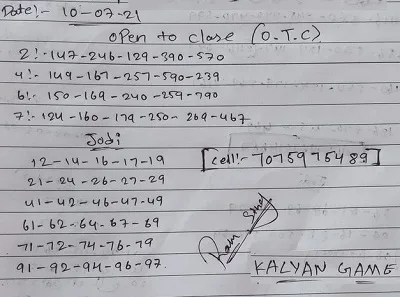 Date!- 10-07-21
OPen to close (O.T.C)
2!- 147-246-129-390-570
4!- 149-167-257-590-239
6!- 150-169-240-259-790
7!- 124-160-179-250-269-467
Jodi
12-14-16-17-19
[Cell!- 7075975489]
21-24-26-27-29
41-42-46-47-49
61-62-64-67-69
71-72-74-76-79
91-92-94-96-97
Ram
KALYAN GAME